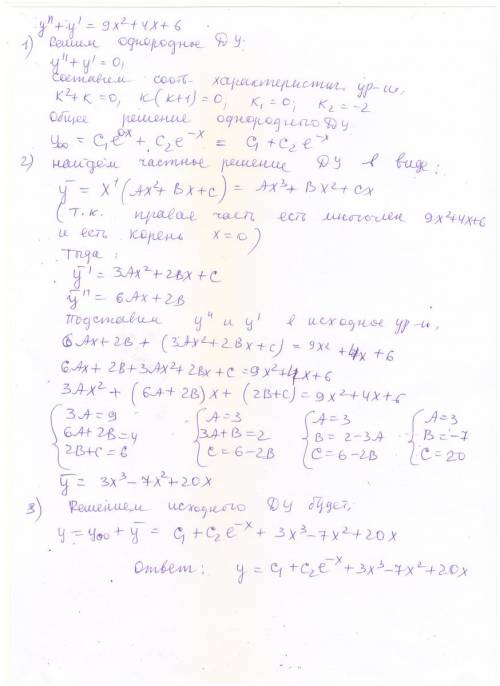 y'' + y' = 9x² + 4x + 6
1) Решим однородное ДУ.
y'' + y' = 0;
Составим соотв. характеристич. ур-ие,
k² + k = 0, k(k+1) = 0, k₁ = 0; k₂ = -2
Общее решение однородного ДУ.
y₀₀ = C₁e^{0x} + C₂e^{-x} = C₁ + C₂e^{-x}
2) найдём частное решение ДУ в виде:
y̅ = x¹(Ax² + Bx + C) = Ax³ + Bx² + Cx
(т.к. правая часть есть многочлен 9x²+4x+6
и есть корень x=0)
Тогда:
y̅' = 3Ax² + 2Bx + C
y̅'' = 6Ax + 2B
Подставим y'' и y' в исходное ур-и,
6Ax + 2B + (3Ax² + 2Bx + C) = 9x² + 4x + 6
6Ax + 2B + 3Ax² + 2Bx + C = 9x² + 4x + 6
3Ax² + (6A + 2B)x + (2B + C) = 9x² + 4x + 6
{3A = 9 {A = 3 {A = 3 {A = 3
{6A + 2B = 4 {3A + B = 2 {B = 2 - 3A {B = -7
{2B + C = 6 {C = 6 - 2B {C = 6 - 2B {C = 20
y̅ = 3x³ - 7x² + 20x
3) Решением исходного ДУ будет,
y = y₀₀ + y̅ = C₁ + C₂e^{-x} + 3x³ - 7x² + 20x
Ответ: y = C₁ + C₂e^{-x} + 3x³ - 7x² + 20x